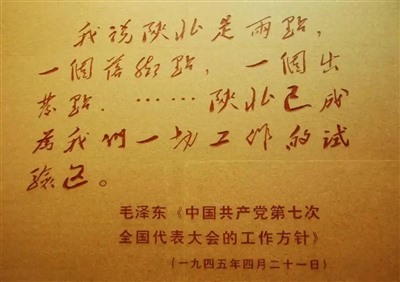 我说陝北是兩點，
一個落脚點，一個出
發點．……陝北已成
爲我們一切工作的試
驗区。
毛泽东《中国共产党第七次
全国代表大会的工作方针》
（一九四五年四月二十一日）